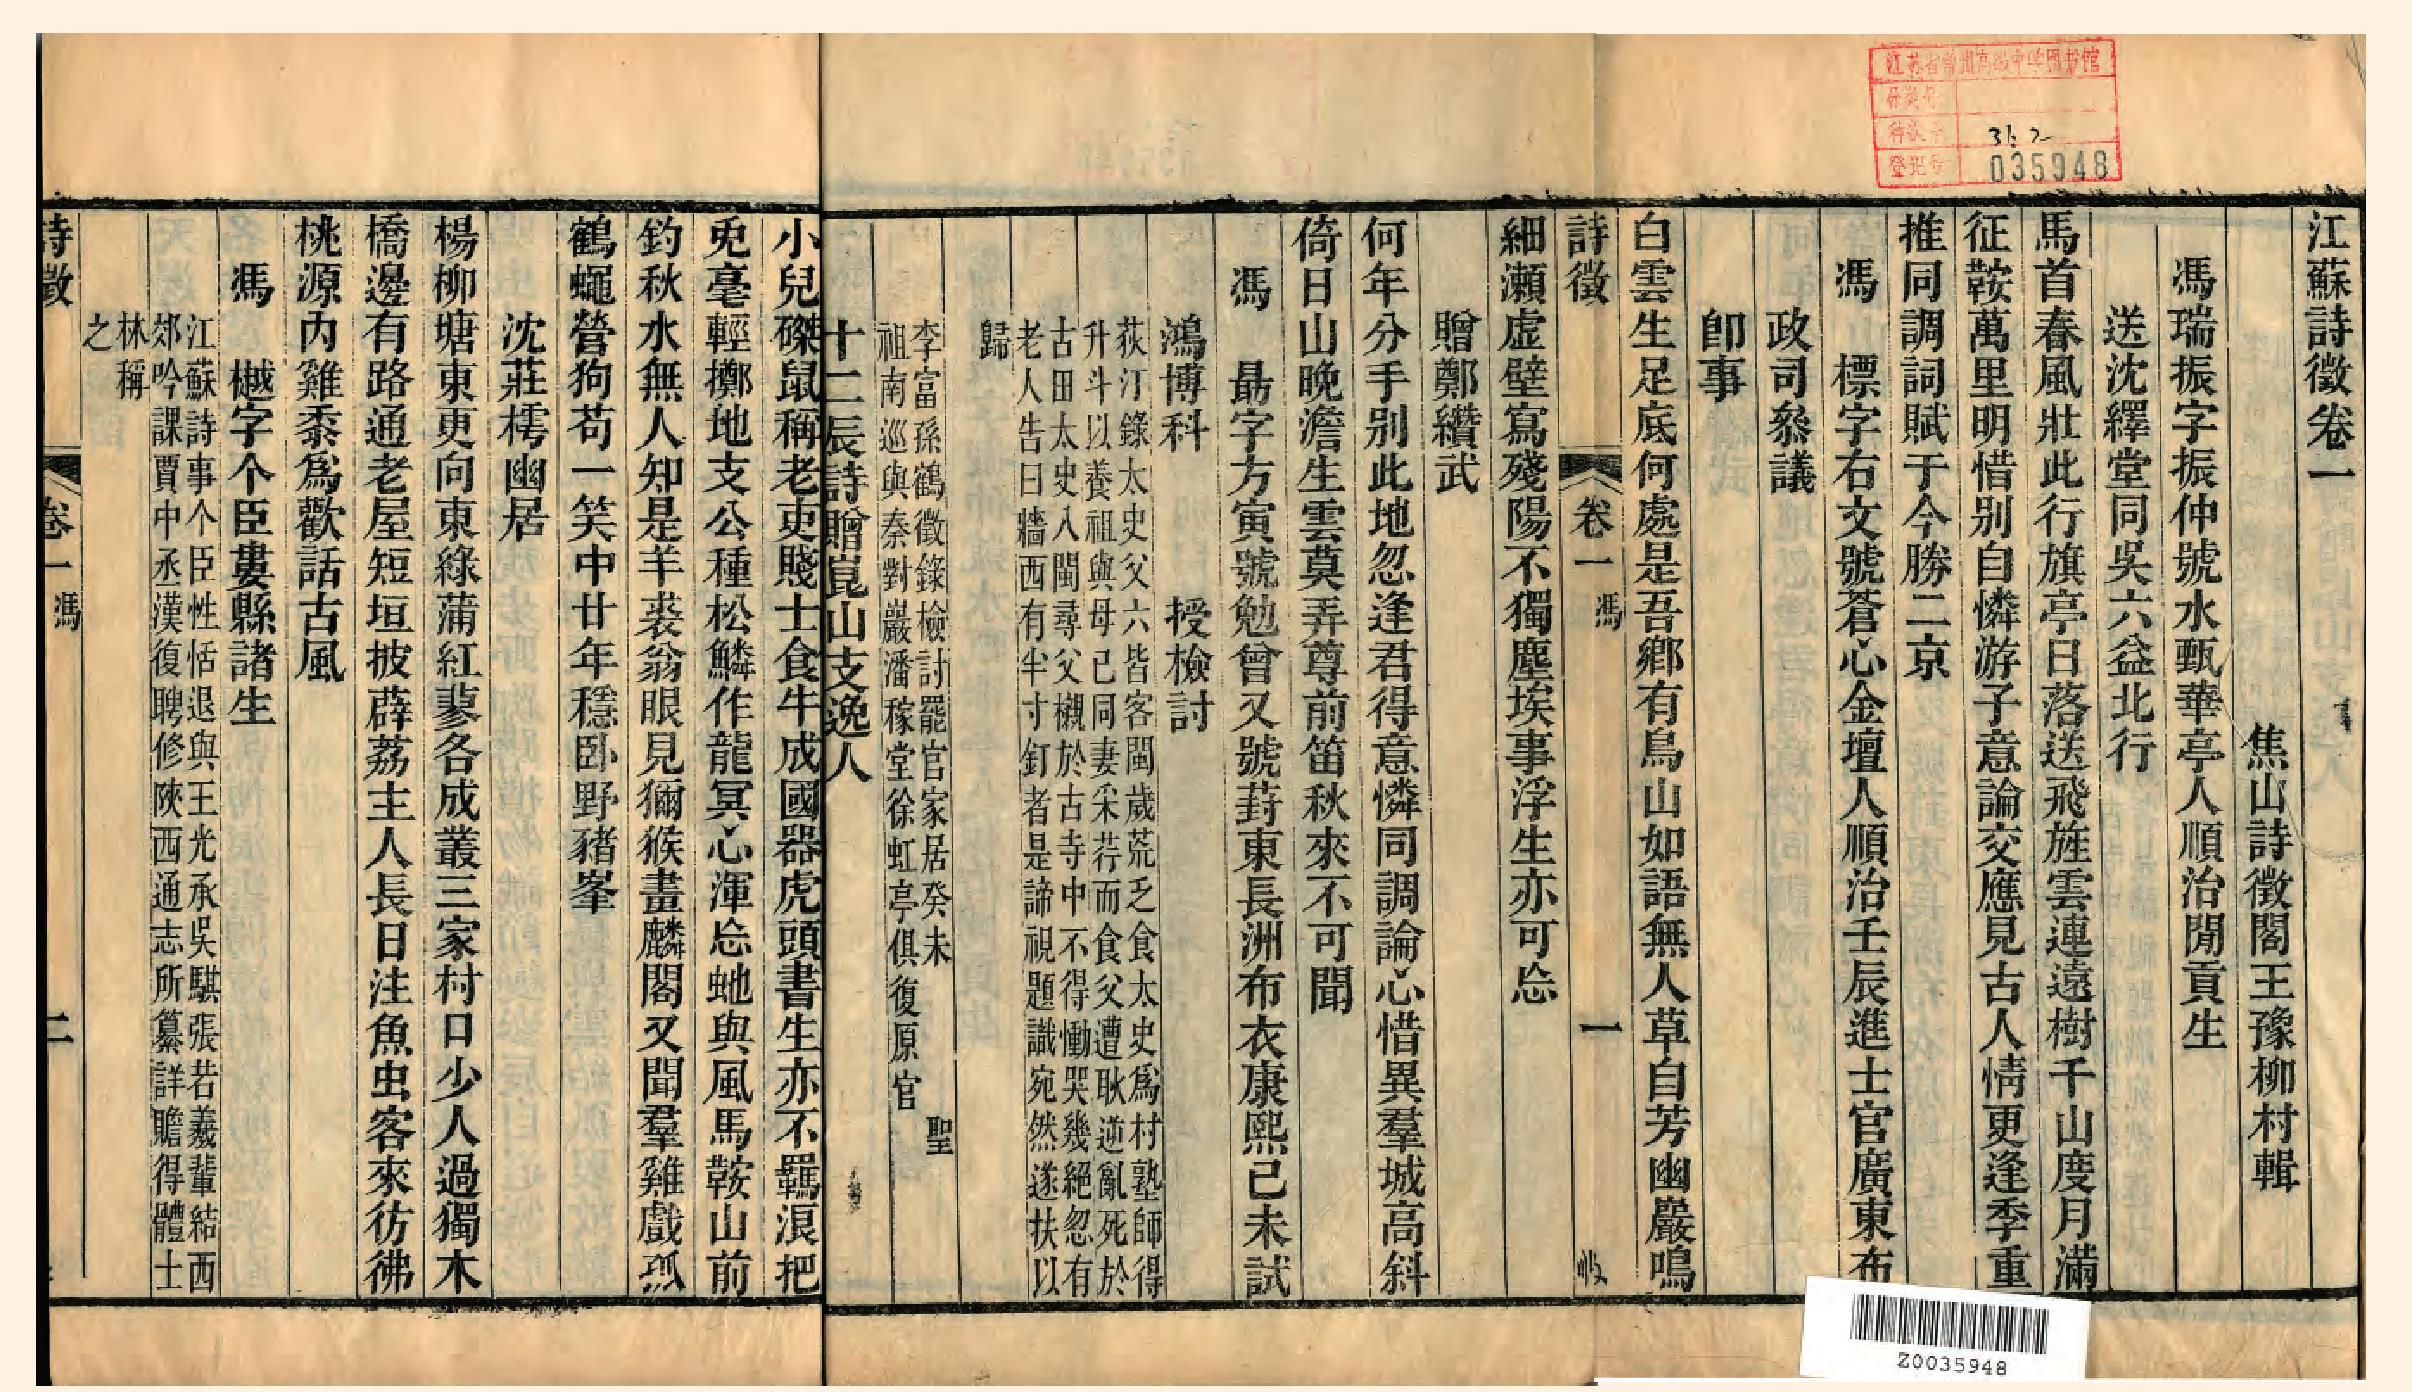 江蘇詩徵卷一
焦山詩徵閣王豫柳村輯
馮瑞振字振仲號水甄華亭人順治閒貢生
送沈繹堂同吳六益北行
馬首春風壯此行旗亭日落送飛旌雲連遠樹千山度月滿
征鞍萬里明惜别自憐游子意論交應見古人情更逢季重
推同調詞賦于今勝二京
馮標字右文號蒼心金壇人順治壬辰進士官廣東布
政司叅議
卽事
白雲生足底何處是吾鄉有鳥山如語無人草自芳幽巖鳴
詩徵 卷一 馮 一
細瀨虛壁寫殘陽不獨塵埃事浮生亦可忘
贈鄭纘武
何年分手別此地忽逢君得意憐同調論心惜異羣城高斜
倚日山晚澹生雲莫弄尊前笛秋來不可聞
馮勗字方寅號勉曾又號葑東長洲布衣康熙己未試
鴻博科 授檢討
荻汀錄太史父六皆客閩歲荒乏食太史爲村塾師得
升斗以養祖與母己同妻采荇而食父遭耿逆亂死於
古田太史入閩尋父櫬於古寺中不得慟哭幾絕忽有
老人告曰牆西有半寸釘者是諦視題識宛然遂扶以
歸
李富孫鶴徵錄檢討罷官家居癸未 聖
祖南巡與秦對巖潘稼堂徐虹亭俱復原官
十二辰詩贈崑山支逸人
小兒磔鼠稱老吏賤士食牛成國器虎頭書生亦不羈浪把
兔毫輕擲地支公種松鱗作龍冥心渾忘虵與風馬鞍山前
釣秋水無人知是羊裘翁眼見獮猴畫麟閣又聞羣雞戲孤
鶴蠅營狗苟一笑中廿年穩卧野豬峯
沈莊樗幽居
楊柳塘東更向東綠蒲紅蓼各成叢三家村口少人過獨木
橋邊有路通老屋短垣披薜荔主人長日注魚虫客來彷彿
桃源內雞黍爲歡話古風
馮樾字个臣婁縣諸生
江蘇詩事个臣性恬退與王光承吳騏張若羲輩結西
郊吟課賈中丞漢復聘修陝西通志所纂詳贍得體士
林稱
之
詩徵 卷一 馮 二
江苏省常州高级中学图书馆
登记号 035948
Z0035948